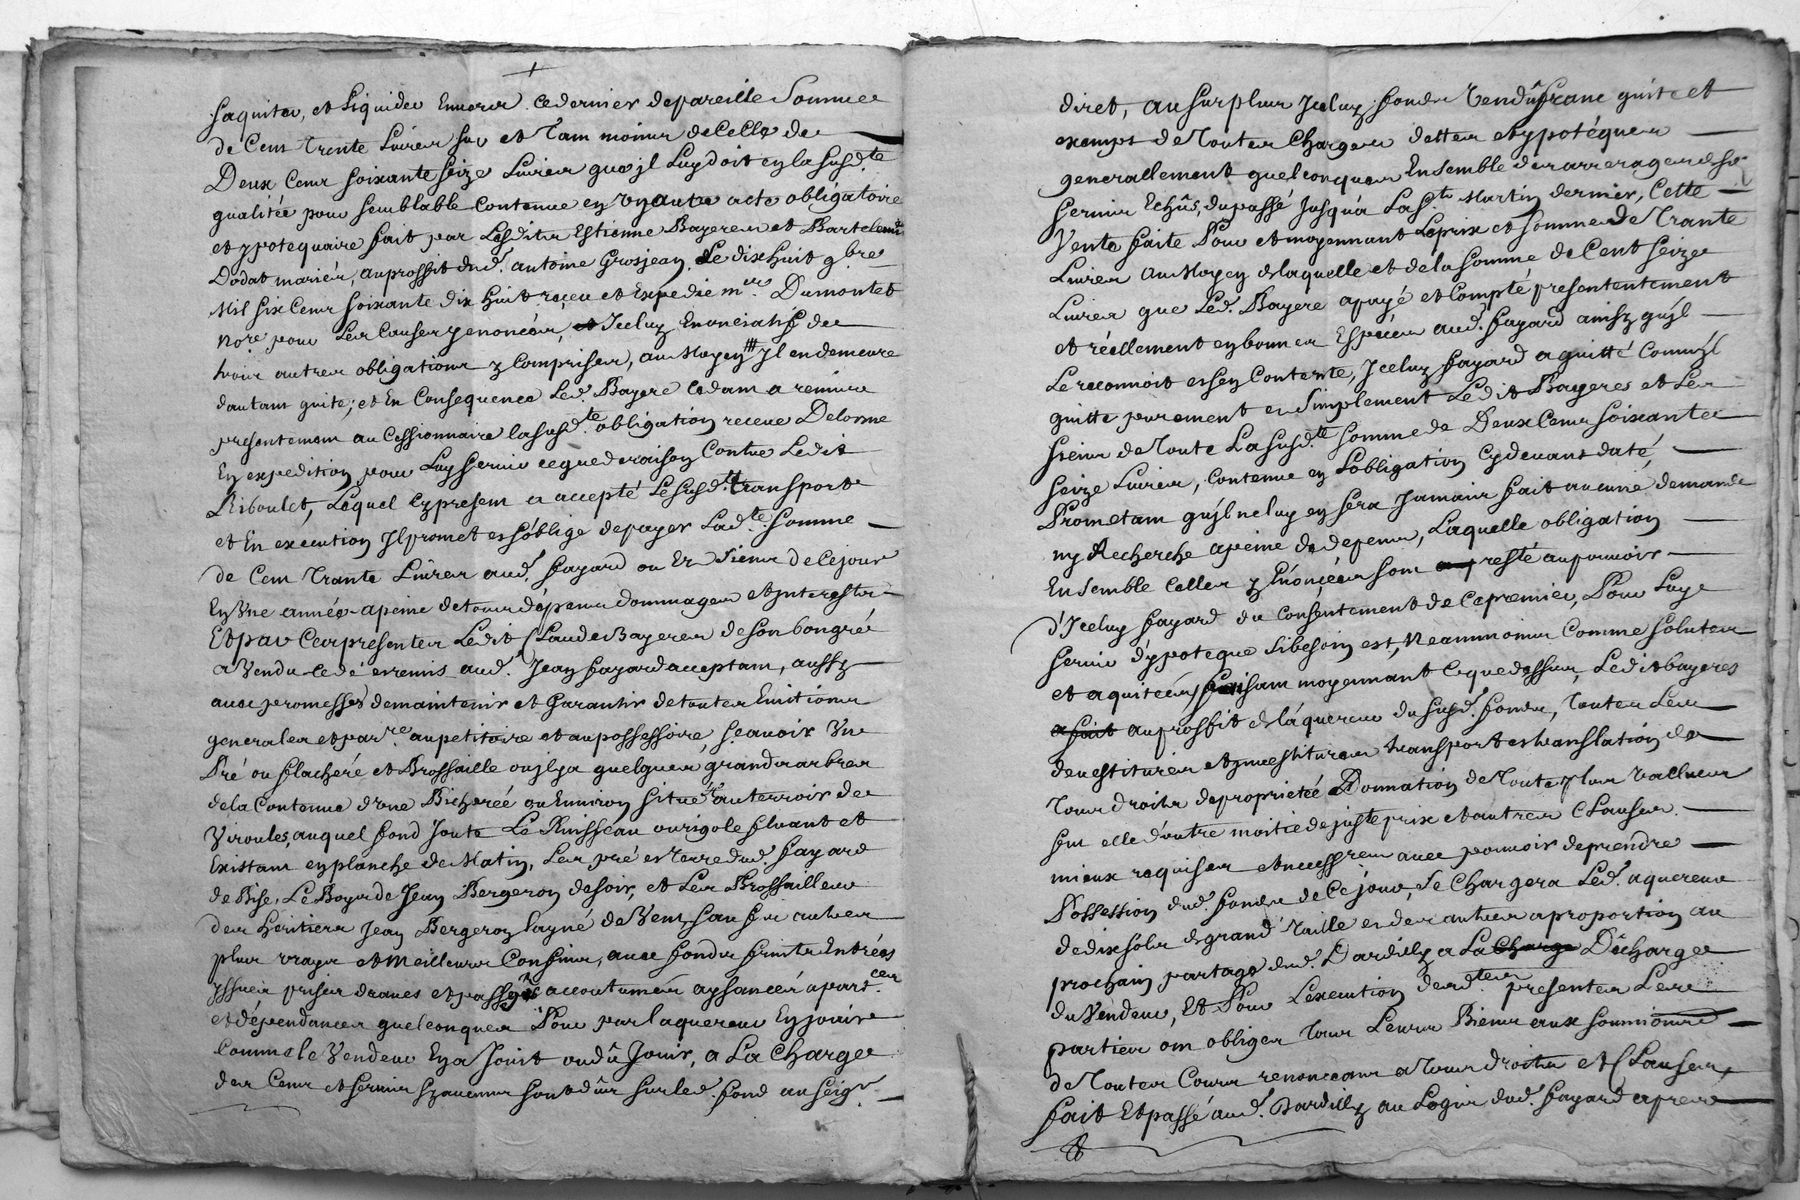 saquiter, et Liquider Enuers cedernier depareille Somme
de Cent trente Liures sur et tam moins deCelle de
Deux Cent soixante seize Liures que jl Luy doit en la susd.te
qualitée pour semblable contenue en un autre acte obligatoire
et ypotequaire fait par Lesdits Estienne Bayere et Bartelemie
Dodat mariés, auproffit dud. antoine Grosjean Le dix huit 9bre
Mil six Cent soixante dix huit receu et Expedié m.re Dumontet
nore pour Les Causes y enoncées, Iceluy Enonciatif de
trois autres obligations y Comprises, au Moyen jl en demeure
dautam quite; et En Consequence Led. Bayere cedam a remis
presentemem au Cessionnaire la susd.te obligation receue Delorme
En expedition pour Luy seruir ceque deraison Contre Ledit
Riboulet, Lequel cy presem a accepté Le susd. transport
et En execution Jl promet et soblige depayer Lad.te somme
de Cem trante Liures aud. fayard ou es siens de Ce jour
En Une année apeine detous dépens dommages et Interests
Et par Ces presentes Ledit Claude Bayere de son bongré
a Vendu cedé et remis aud. Jean fayard acceptam, aussy
auec promesses demaintenir et Garantir detoutes Euitions
generales et par.re aupetitoire et aupossessoire, scauoir Un
Pré ou flacheré et Brossaille ou jlya quelques grands arbres
dela Contenue d'une Bicherée ou Enuiron situé au terroir de
Viroules, auquel fond Joute Le Ruisseau ou rigole fluant et
Existam en planche de Matin, Les pré et terre dud. fayard
de Bise, Le Boyer de Jean Bergeron de soir, et Les Brossailles
des heritiers Jean Bergeron layné de Vent, sauf ses autres
plus vrays et Meilleurs Confins, auec fonds fruits Entrées
yssues prises draves et passages accoutumés aysances apart.ces
et dépendances quelconques Pour par laquereur En jouir
Comme le Vendeur En a Jouit ou dû Jouir, a La Charge
des Cens et seruis sy aucuns sont dûs sur led. fond au seigr
diret, au surplus Iceluy fonds Vendû franc quitte et
exempt de toutes Charges dettes et ypotéques
generallement quelconques Ensemble des arrerages des
seruis Echûs, dupassé Jusqu'a La S.t Martin dernier, Cette
Vente faite Pour et moyennant Le prix et somme de trante
Liures au Moyen de laquelle et de la somme de Cent seize
Liures que Led. Bayere a payé et Compté presententement
et réellement en bonnes Espéces aud. fayard ainsy qujl
Le reconnoit et sen Contente, Iceluy fayard a quitté Comme jl
quitte purement et simplement Ledit Bayeres et Les
siens de toute La susd.te somme de Deux Cens soixante
seize Liures, Contenue en Lobligation cy deuant daté,
Prometam qujl ne luy en sera Jamais fait aucune demande
ny Recherche a peine de depens, Laquelle obligation
Ensemble Celles y Enoncées sont resté au pouuoir
d'Iceluy fayard du consentement de Ce premier, Pour Luy
seruir d'ypoteque si besoin est, Neammoins Comme solutes
et aquitées, faisam moyennant ceque dessus, Ledit bayeres
a fait au proffit de l'aquereur du susd. fonds, toutes Les
deuestitures et jnuestitures transport et translation de
tous droits de proprieté Donation de toute plus Vallues
fut elle d'outre moitié de juste prix et autres Clauses
mieux requises et necess.res auec pouuoir deprendre
Possession dud. fonds de Ce jour, se Chargera Led. aquereur
de dix sols de grand' taille et des autres aproportion au
prochain partage dud. Dardilly a La Charge Décharge
du Vendeur, Et Pour L'execution desd.tes presentes Les
parties ont obligez tous Leurs Biens aux soumissions
de toutes Cours renonceans a tous droits et Clauses
fait Et passé aud. Dardilly au Logis dud. fayard apres